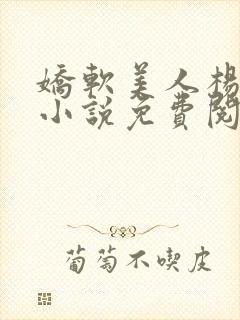 嬌軟美人楊
小說免費閱
葡萄不喫皮